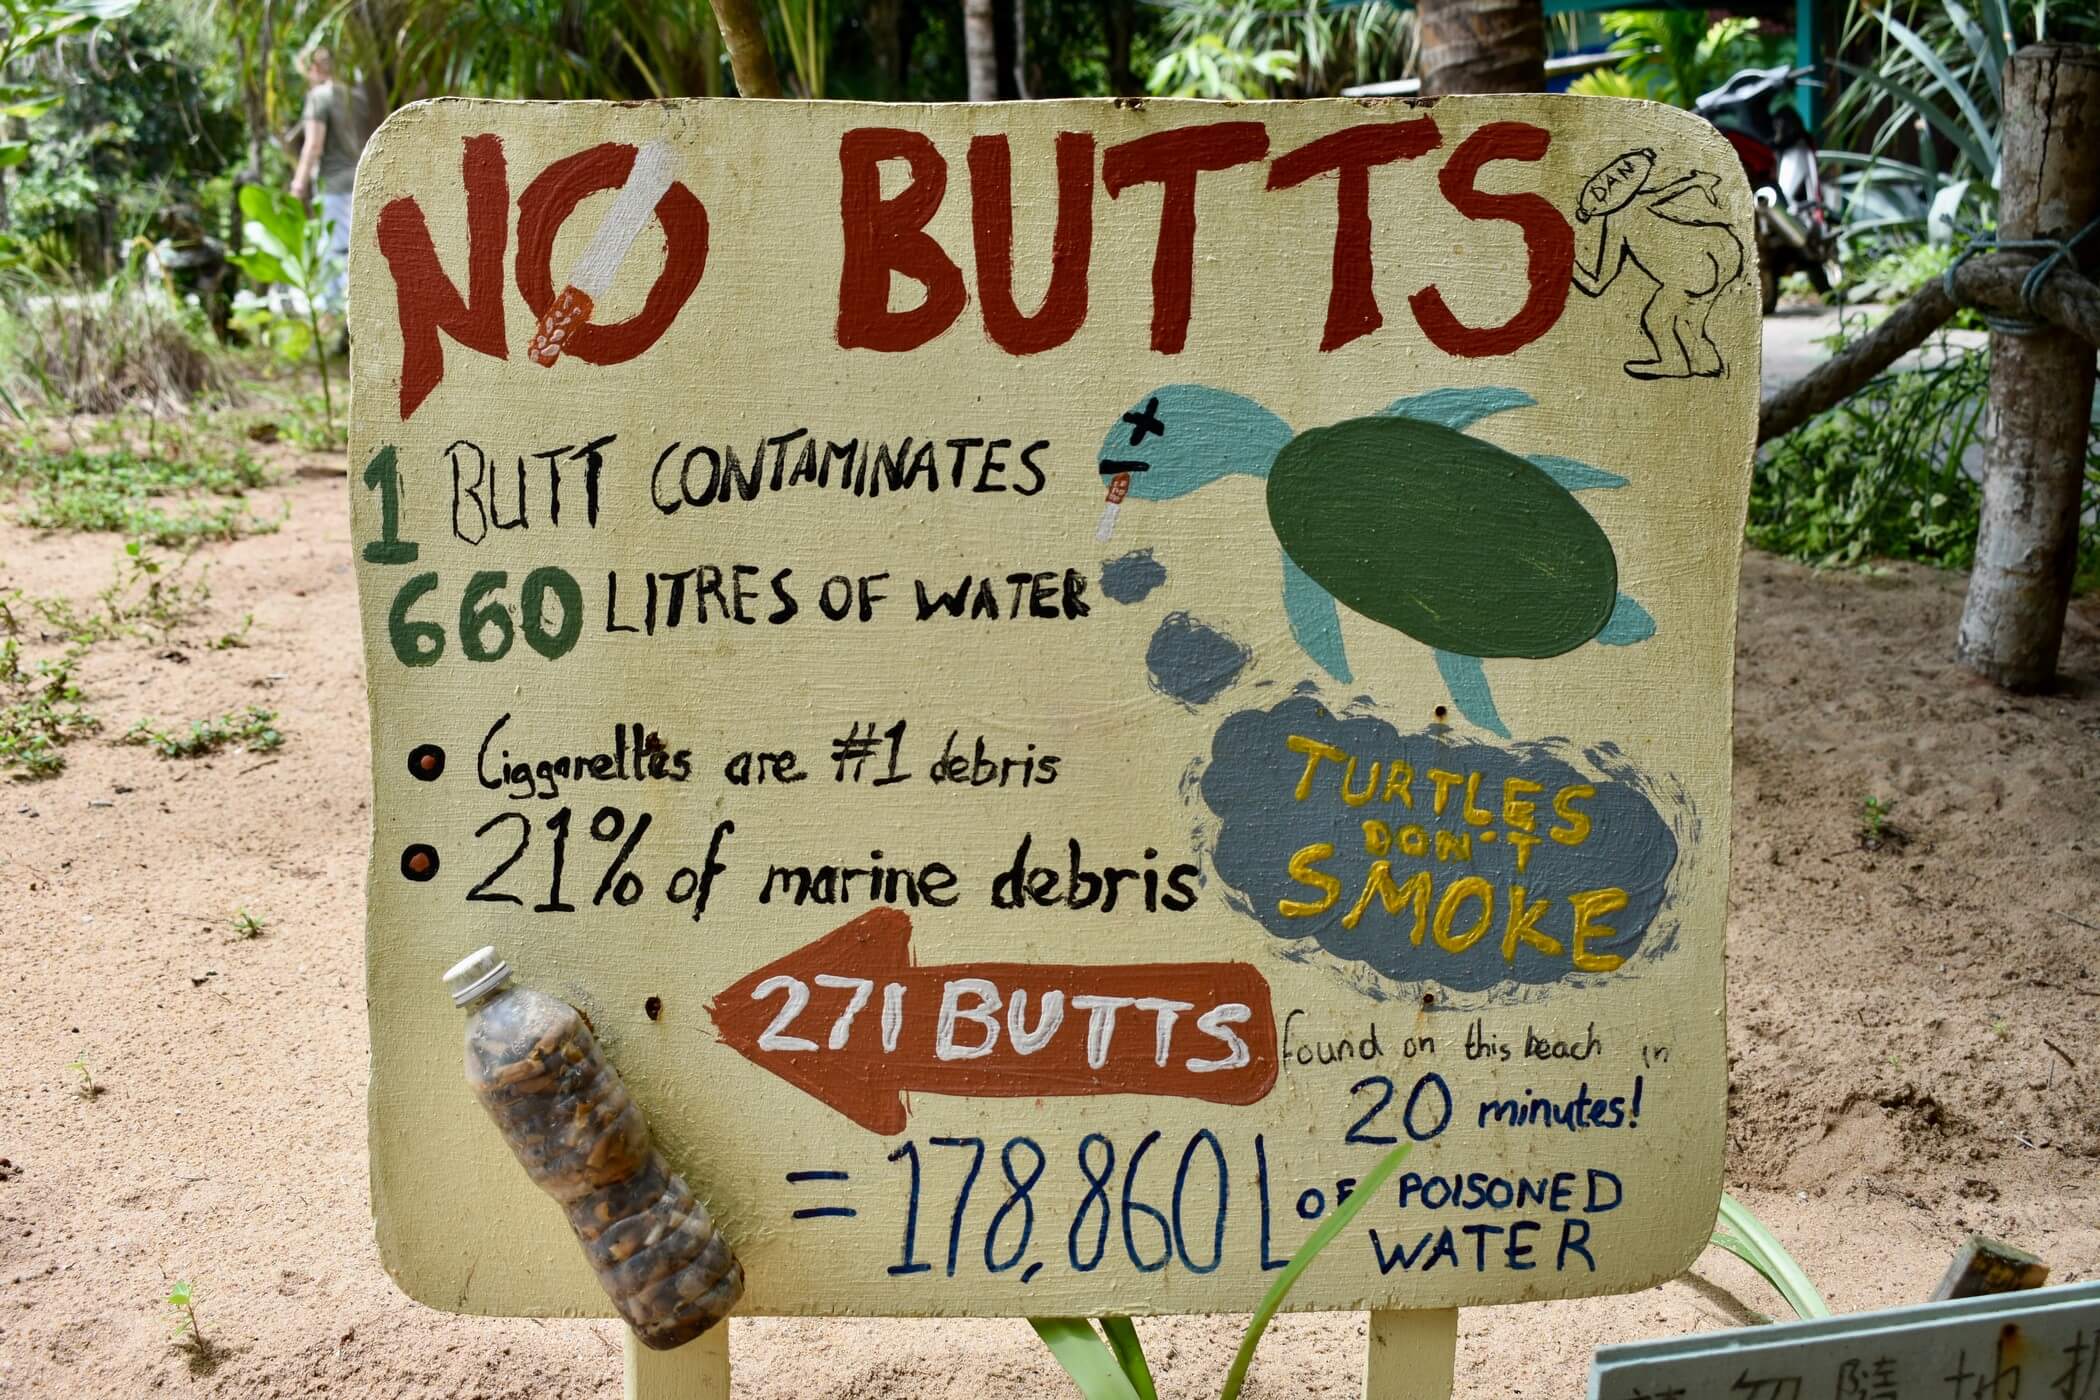 NO BUTTS
DAN
1 BUTT CONTAMINATES
660 LITRES OF WATER
Ciggarettes are #1 debris
21% of marine debris
TURTLES
DON'T
SMOKE
271 BUTTS found on this beach in
20 minutes!
= 178,860 L OF POISONED
WATER
勿 随 地